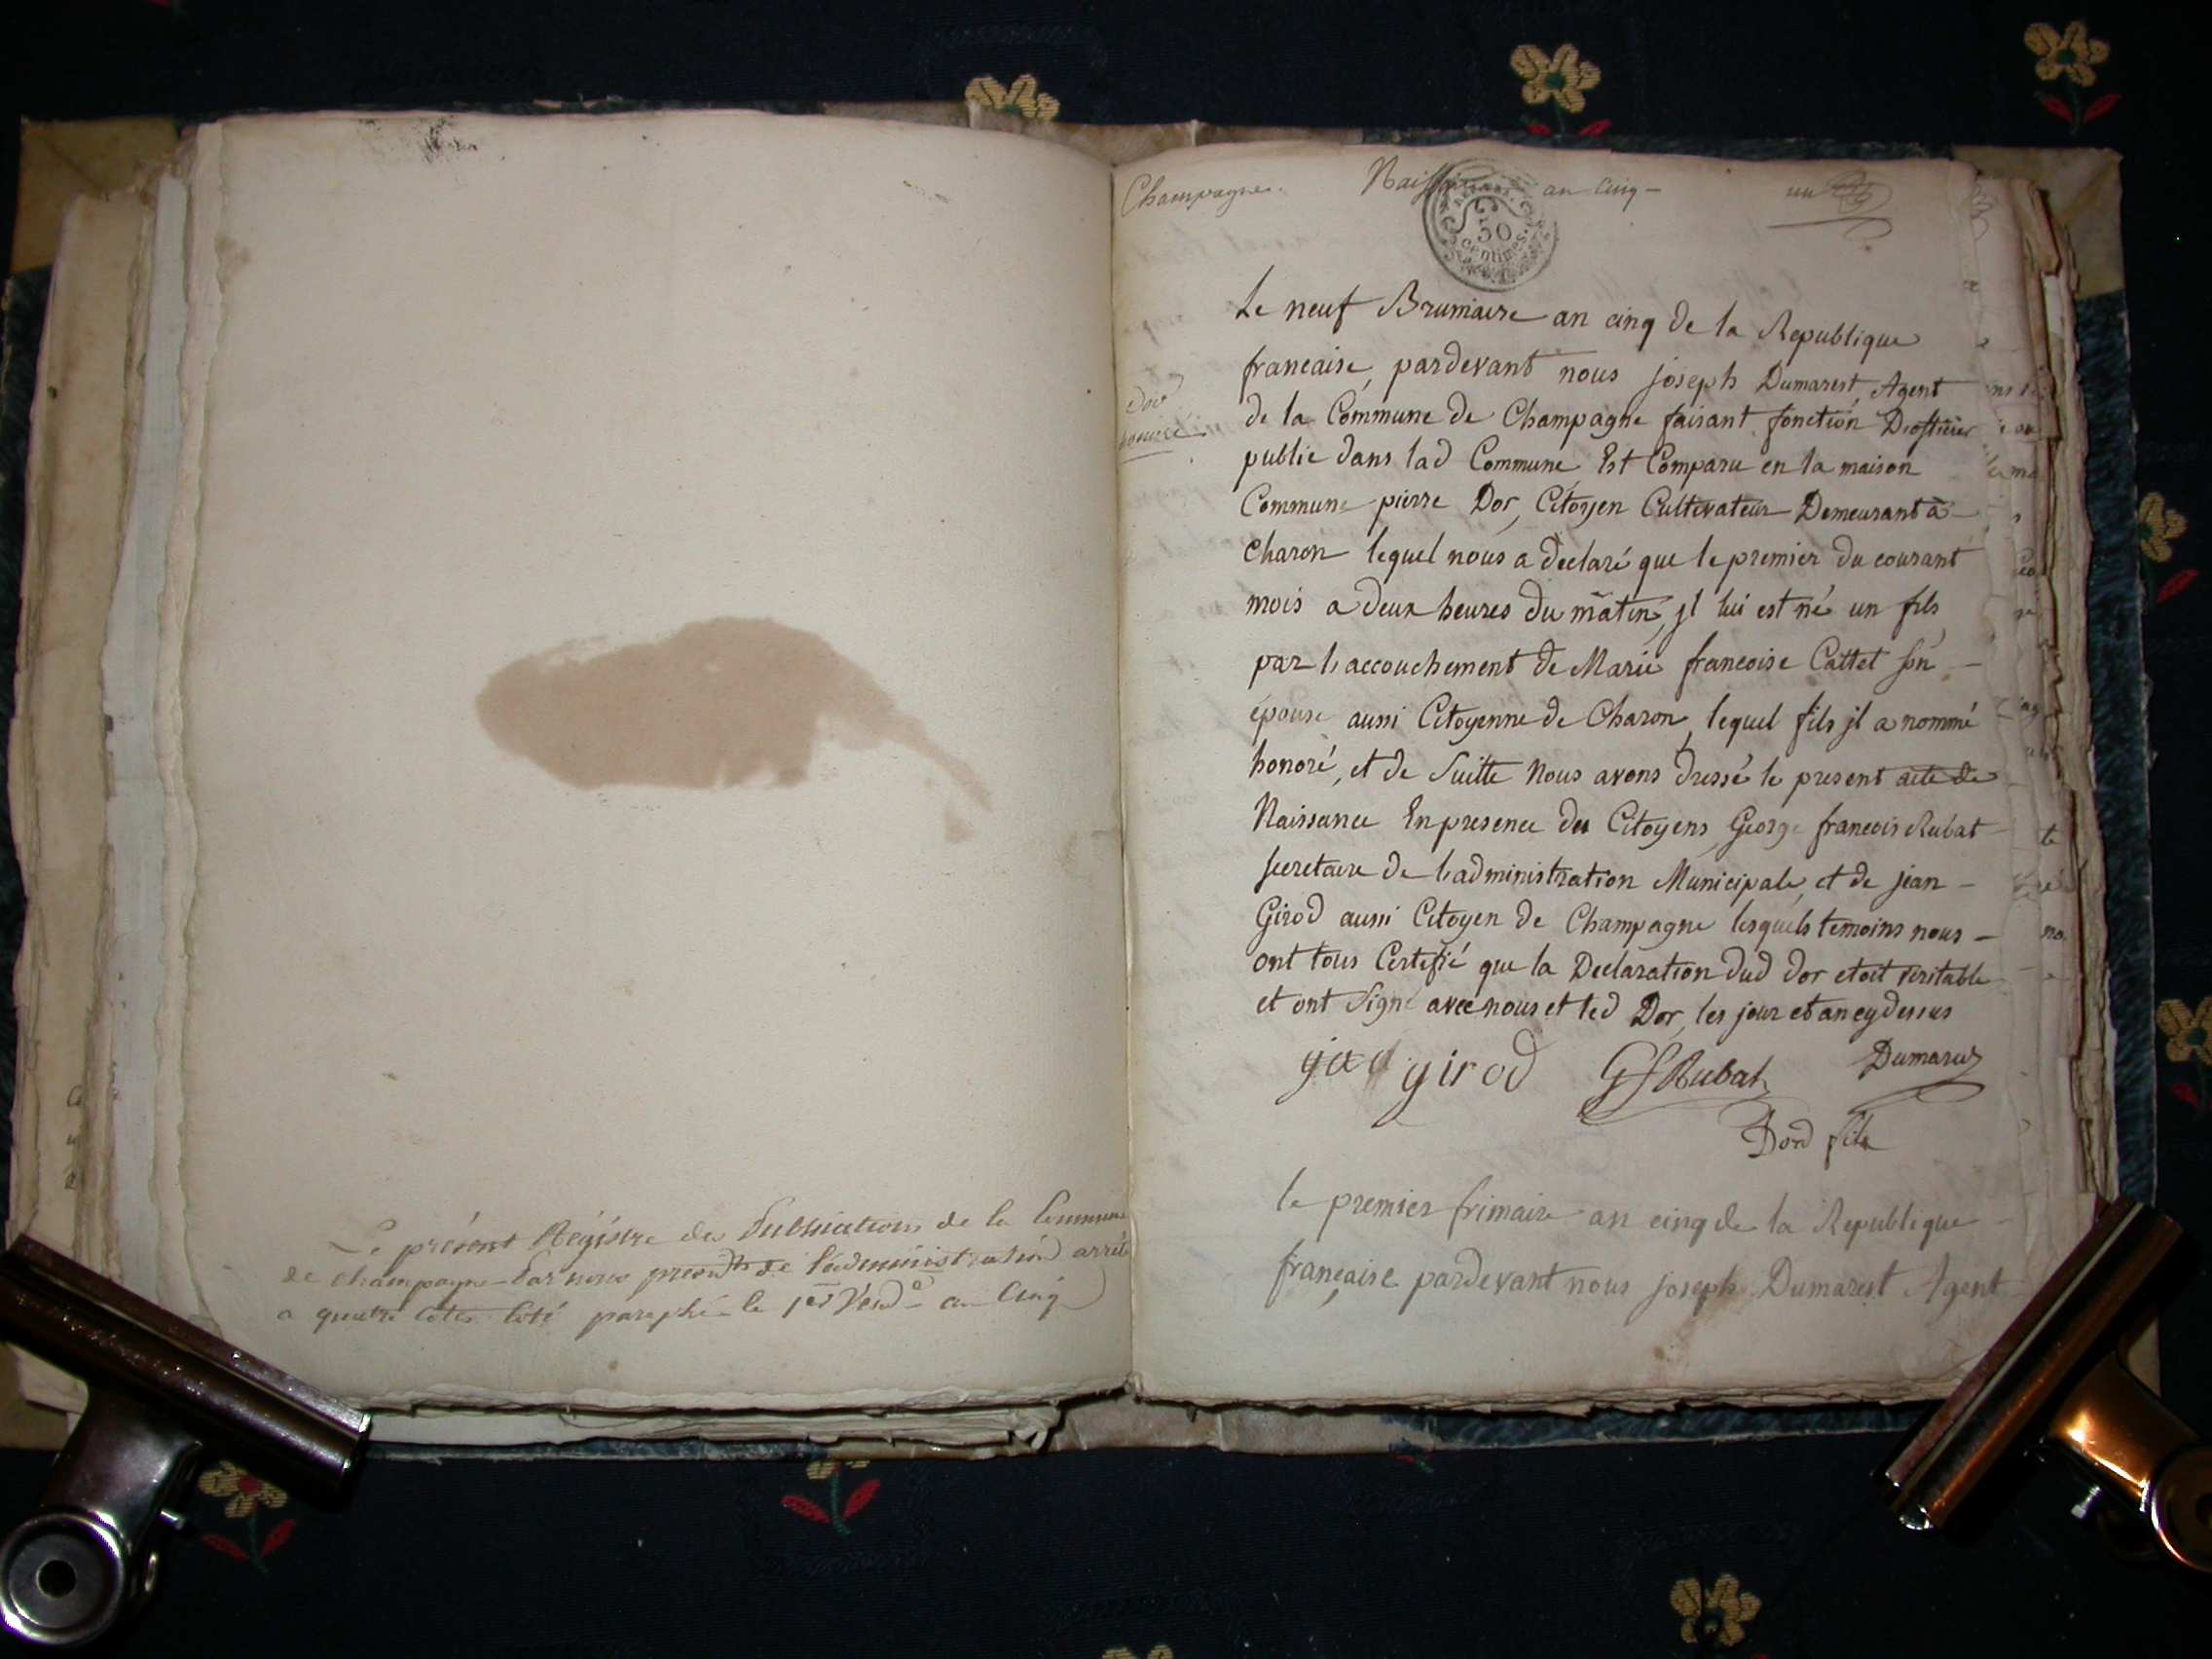 Le présent Régistre des Publications de la Commune
de champagne Par nous presid.t de l'administration arrêté
a quatre cottes coté paraphé le 1er Vend.e an Cinq
Champagne. Naissances an Cinq un
50 centimes.
Dor
honoré
Le neuf Brumaire an cinq de la Republique
francaise, pardevant nous joseph Dumarest Agent
de la Commune de Champagne faisant fonction D'officier
public dans lad Commune Est Comparu en la maison
Commune pierre Dor, Citoyen Cultivateur Demeurant à
Charon lequel nous a declaré que le premier du courant
mois a deux heures du matin, jl lui est né un fils
par l'accouchement de Marie francoise Cattet son
épouse aussi Citoyenne de Charon, lequel fils jl a nommé
honoré, et de Suitte Nous avons dressé le present acte de
Naissance En presence des Citoyens George francois Rubat
secretaire de l'administration Municipale, et de jean
Girod aussi Citoyen de Champagne lesquels temoins nous
ont tous Certifié que la Declaration dud Dor etoit veritable
et ont Signé avec nous et led Dor, les jour et an cy dessus
girod GfRubat Dumarest
Dord fils
le premier frimaire an cinq de la Republique
française pardevant nous joseph Dumarest Agent